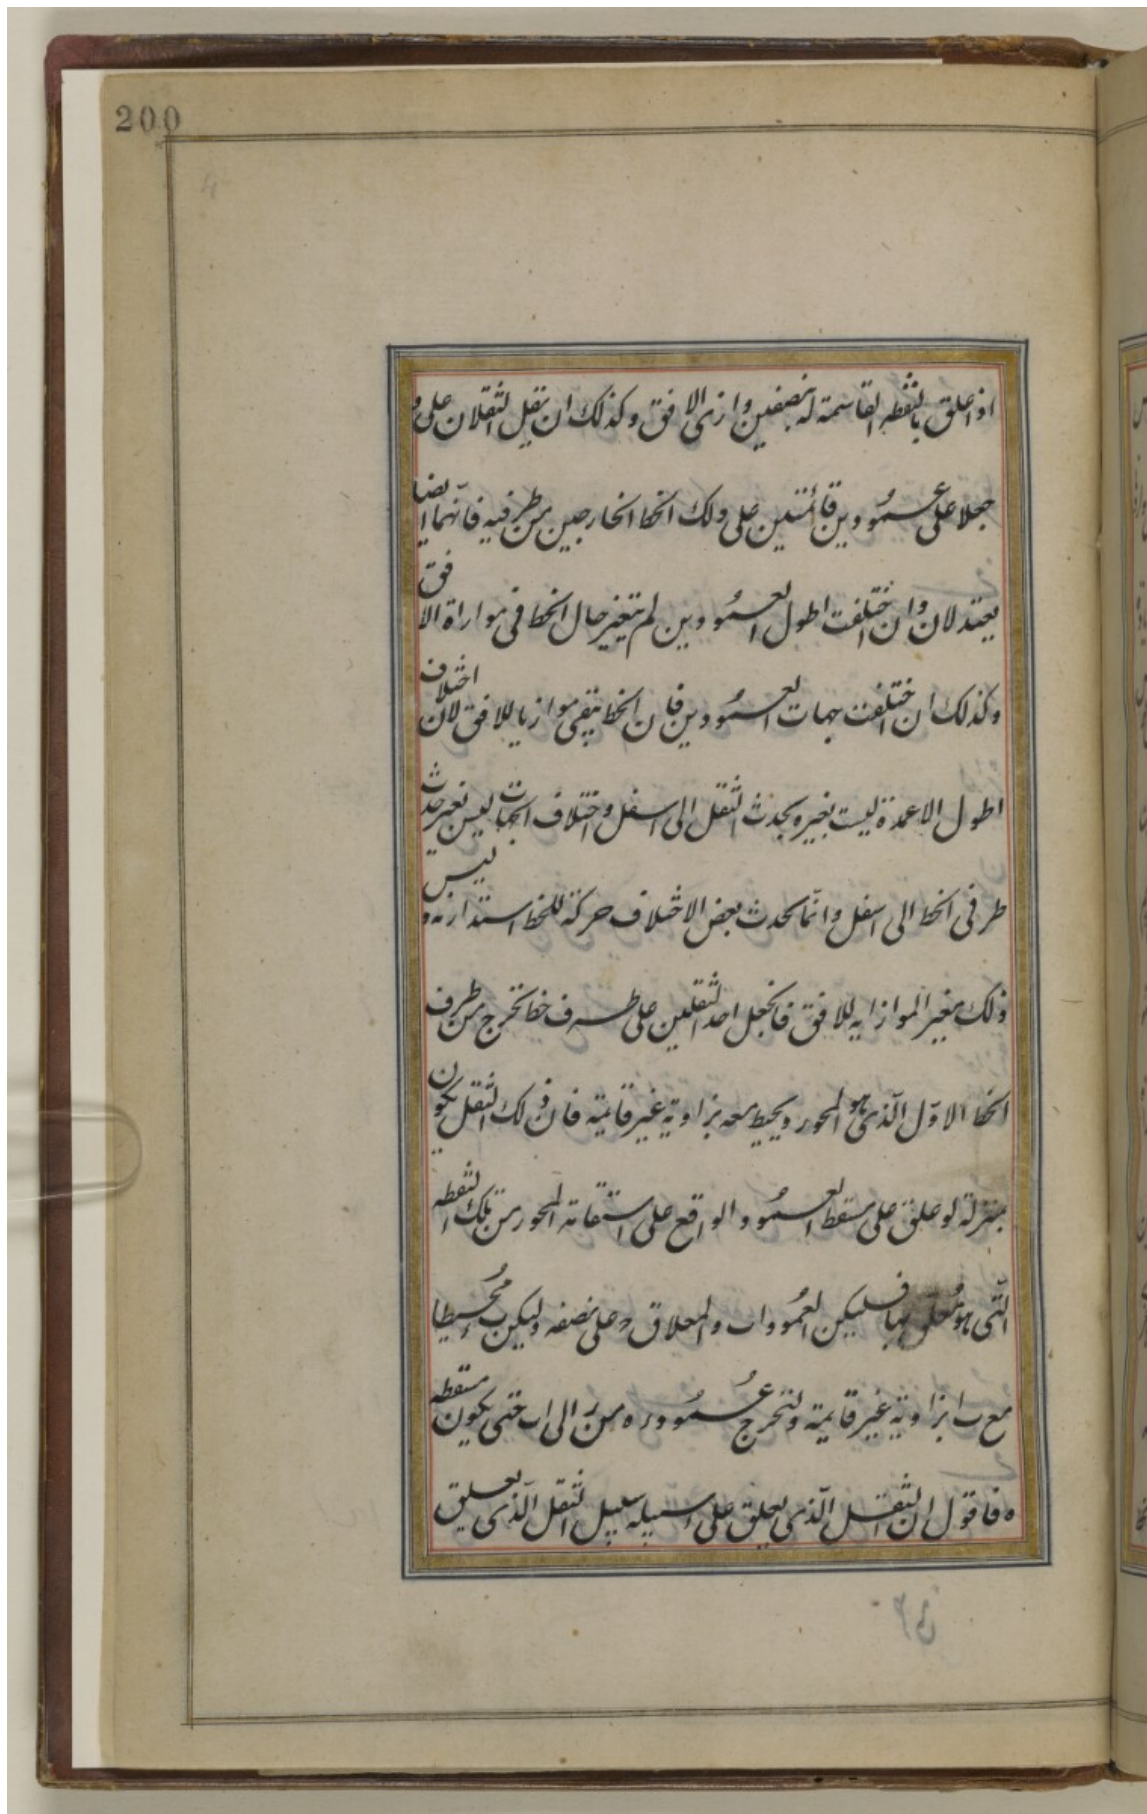 200
اذ اعلق بالنقطه القاسمة له بنصفين وازى الافق وكذلك ان نقل الثقلان على و
جعلا على عمودين قائمتين على ذلك الخط الخارجين من طرفيه فانّهما ايضا
يعتدلان وان اختلفت اطول العمودين لم يتغير حال الخط فى مواراة الافق
وكذلك ان اختلفت جهات العمودين فان الخط يبقى موازيا للافق لان اختلاف
اطول الاعمدة ليست بغيره يحدث الثقل الى اسفل واختلاف الجهات ليس بغير حدث
طرفى الخط الى اسفل وانّما يحدث بعض الاختلاف حركة للخط استدارته وليس
ذلك بمغير الموازايه للافق فانجعل احد الثقلين على طرف خط تخرج من طرف
الخط الاوّل الّذى هو المحور ويحيط معه بزاوية غير قايمة فان ذلك الثقل يكون
بمنزلة لو علق على مسقط العمود الواقع على استقامة المحور من تلك النقطه
الّتى هو معلق بها فليكن العمود اب والمعلاق ج على نصفه وليكن ب محيطا
مع ب ا بزاوية غير قايمة ولنخرج عمود ره من ر الى اب حتى يكون مسقطه
ه فاقول ان الثقل الّذى يعلق على ر سبيله سبيل الثقل الّذى يعلق